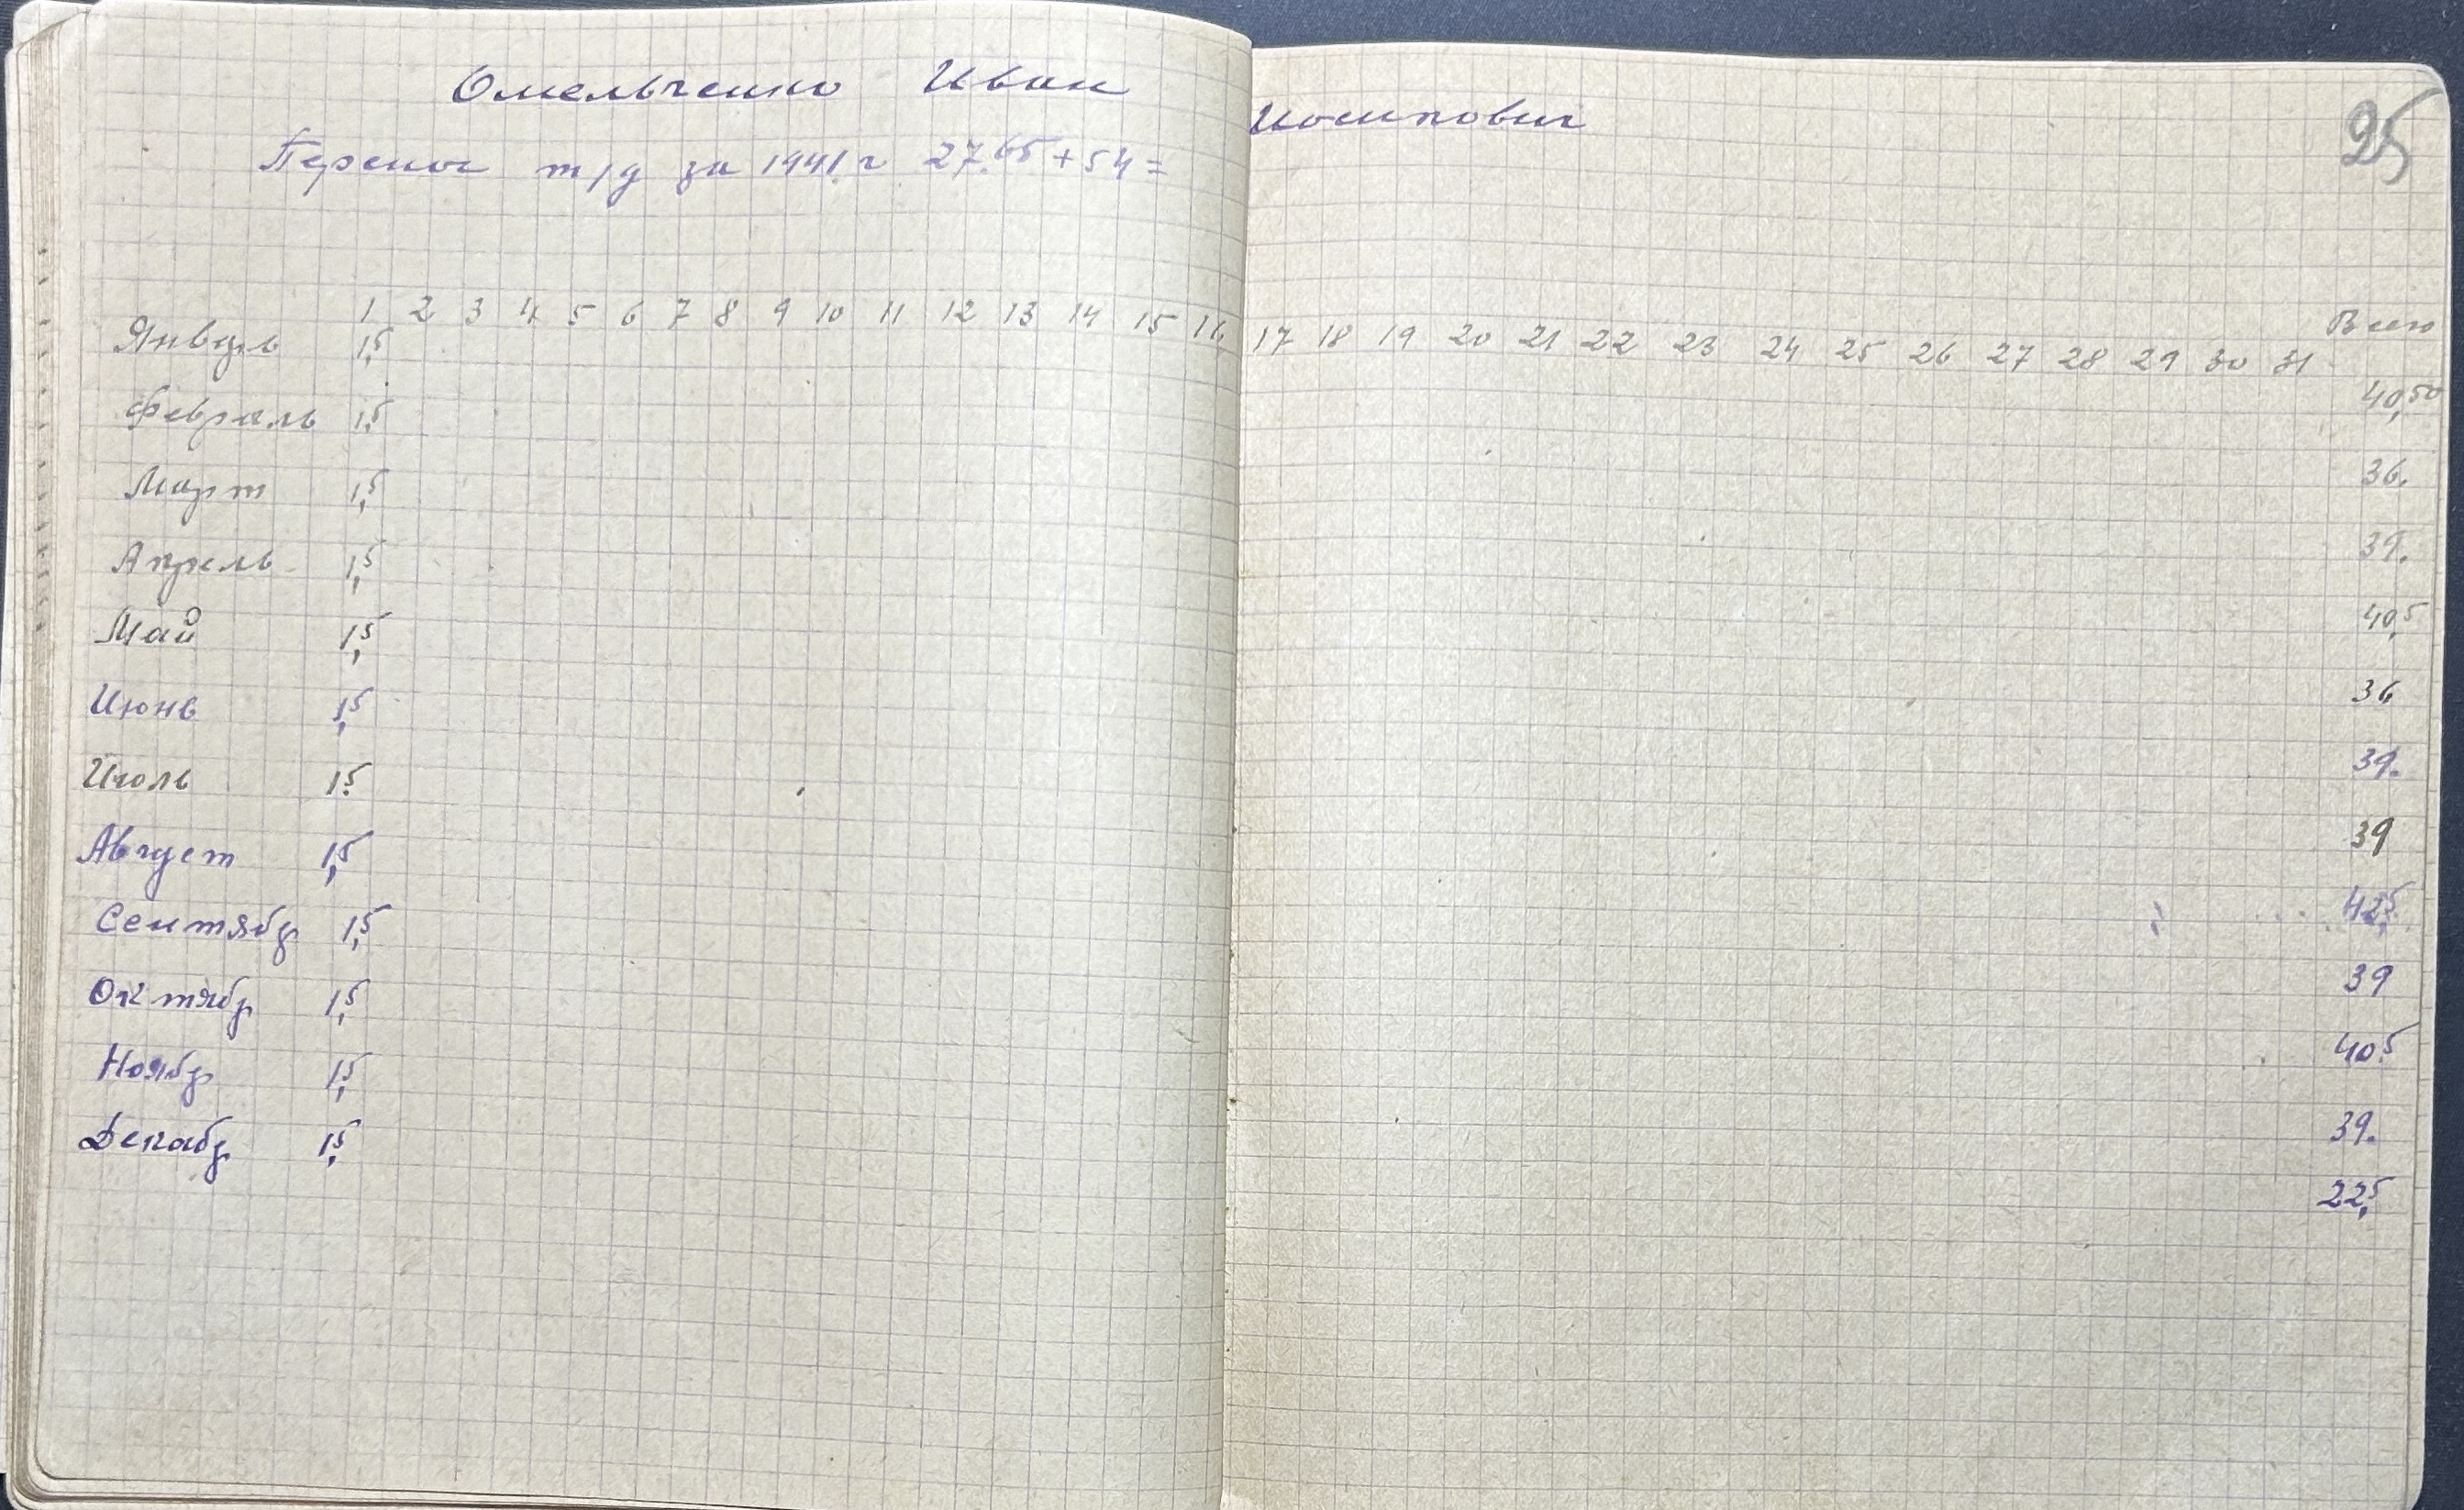 Омельченко Иван Иосипович
25
Перенос т/д за 1941 г 27.65 + 54 =
1 2 3 4 5 6 7 8 9 10 11 12 13 14 15 16 17 18 19 20 21 22 23 24 25 26 27 28 29 30 31 Всего
Январь 1,5 40,50
Февраль 1,5 36.
Март 1,5 39.
Апрель 1,5 40,5
Май 1,5 36
Июнь 1,5 39.
Июль 1.5 39
Август 1,5 42,5
Сентябр 1,5 39
Октябр 1,5 40.5
Ноябр 1,5 39.
Декабр 1,5 22,5